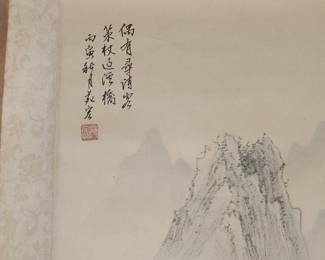 偶有尋詩客
策杖過溪橋
丙寅秋月